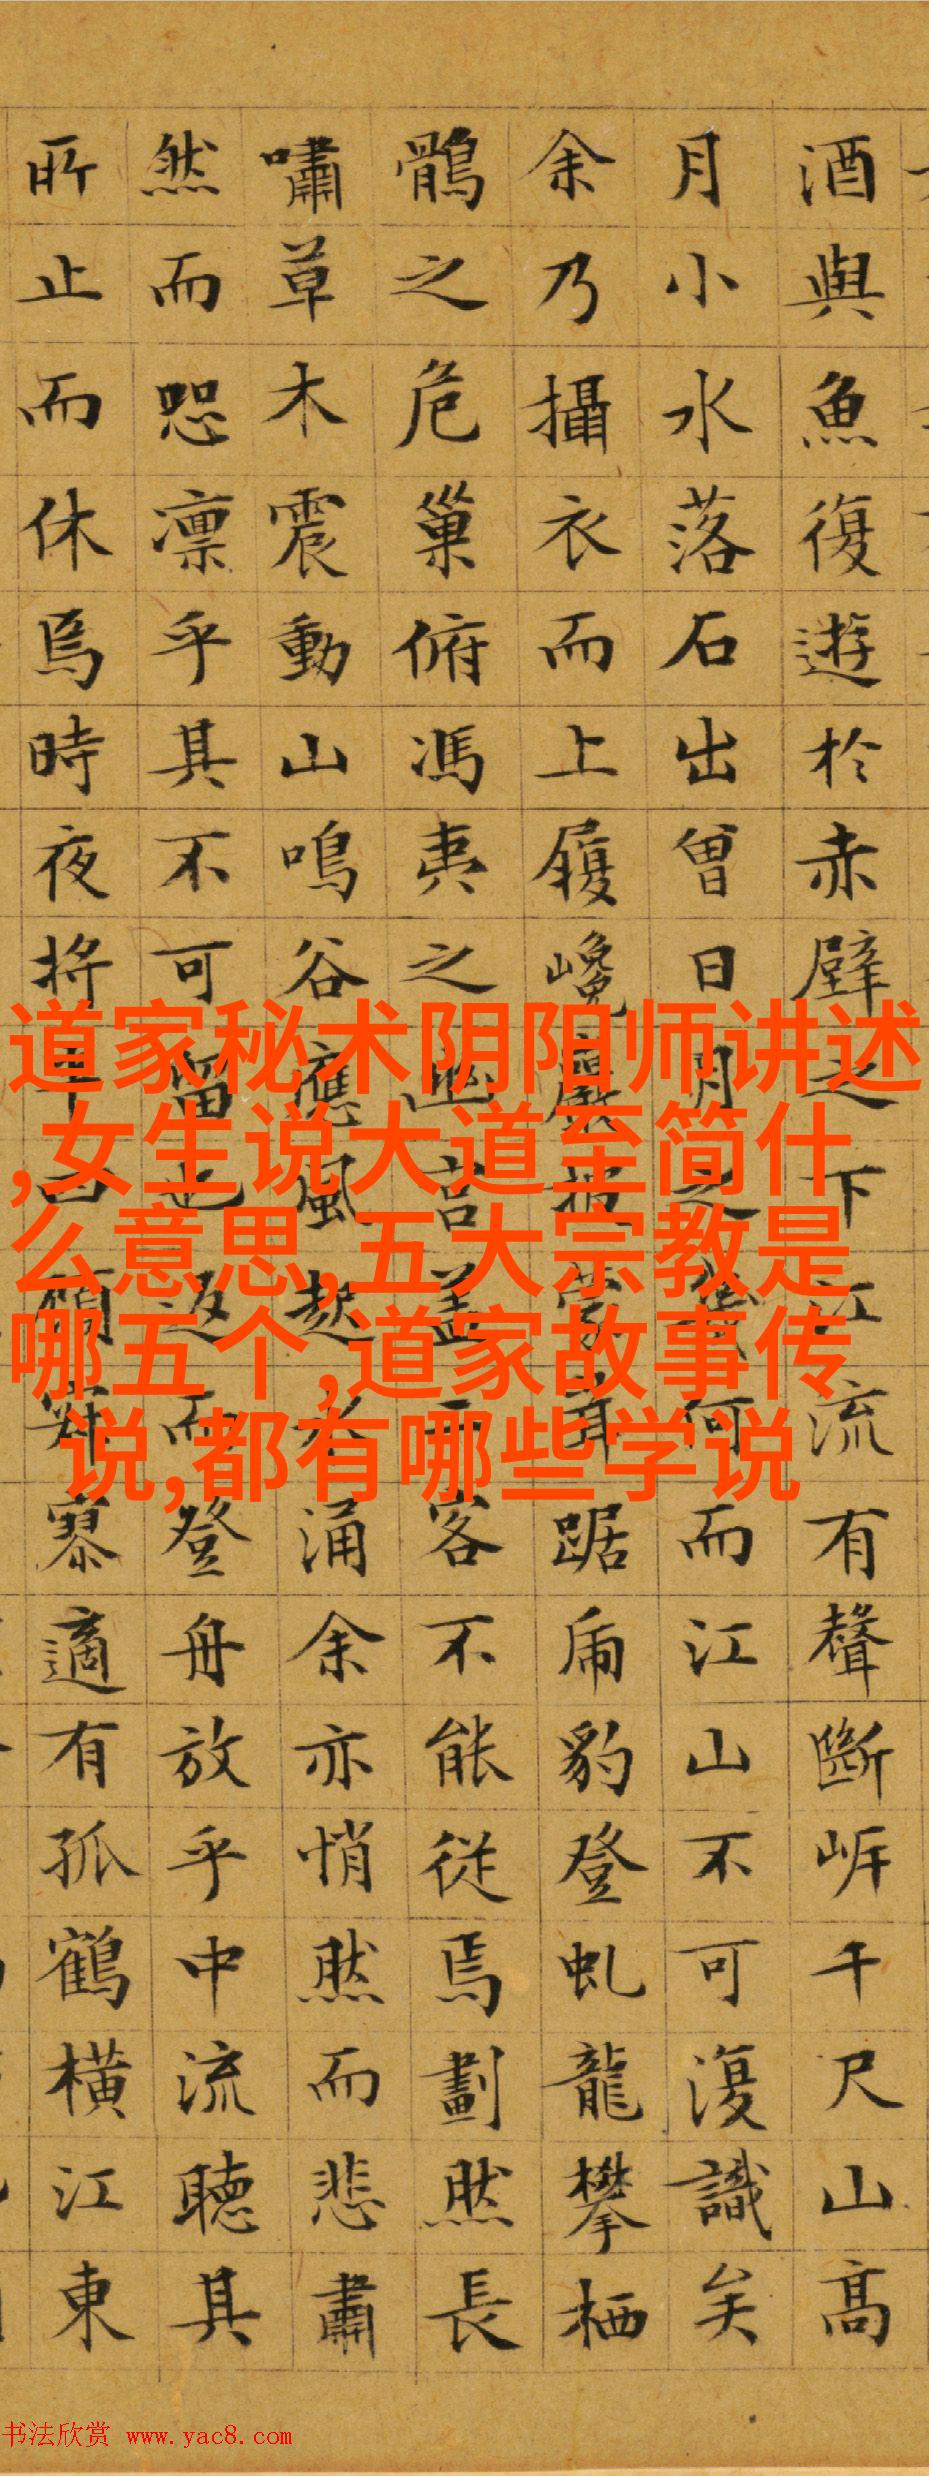 酒與魚復遊於赤壁之下江流有聲斷岍千尺山高
月小水落石出曾日月之幾何而江山不可復識矣
余乃攝衣而上履巉巖披蒙茸踞虎豹登虬龍攀栖
鶻之危巢俯馮夷之幽宮盖二客不能從焉劃然長
嘯草木震動山鳴谷應風起水涌余亦悄然而悲肅
然而恐凛乎其不可留也返而登舟放乎中流聽其
所止而休焉時夜將半四顧寂寥適有孤鶴橫江東
道家秘术阴阳师讲述
,女生说大道至简什
么意思,五大宗教是
哪五个,道家故事传
说,都有哪些学说
书法欣赏 www.yac8.com